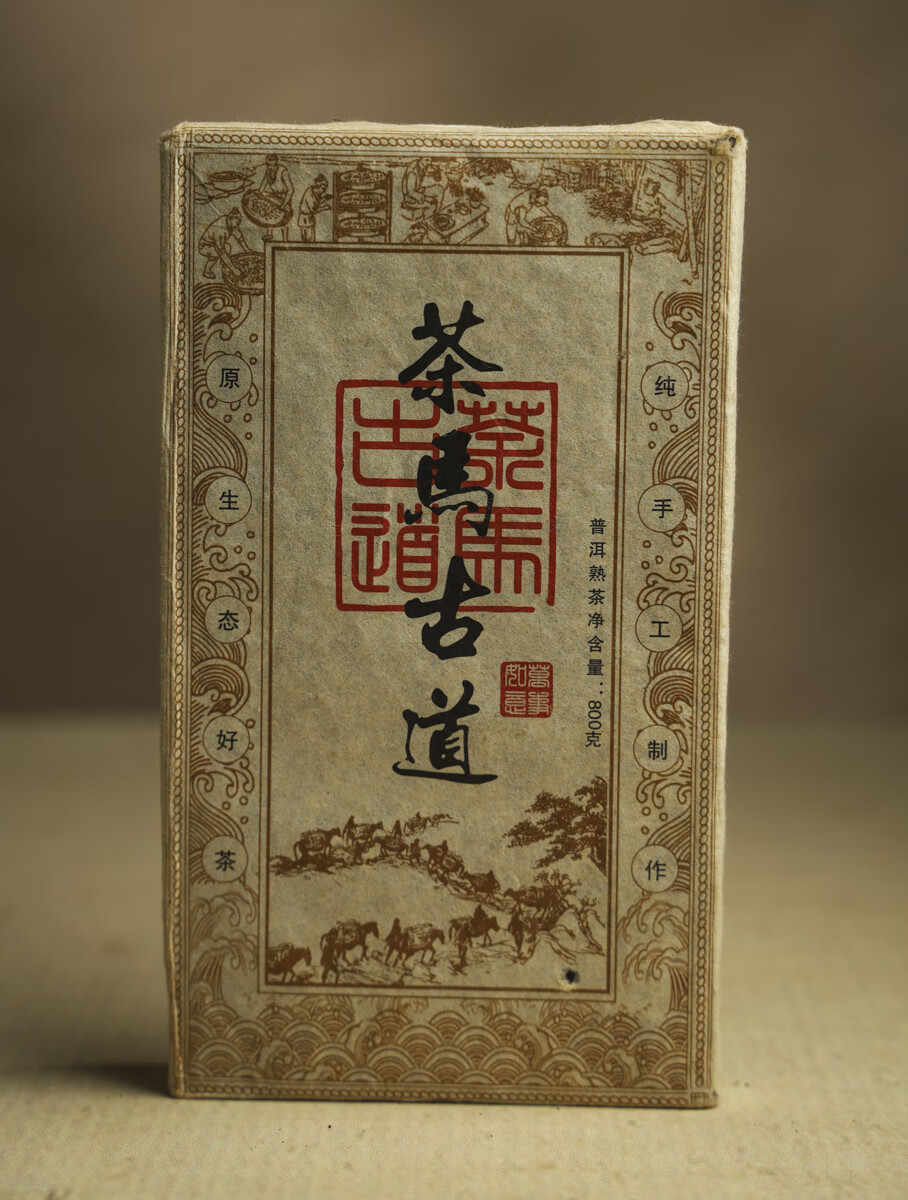 茶馬古道
茶馬古道
萬事如意
普洱熟茶净含量：800克
纯手工制作
原生态好茶